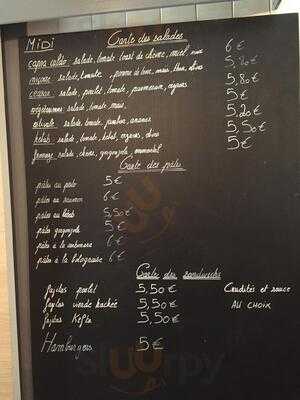 Midi
Carte des salades
capra caldo: salade, tomate, toast de chèvre, miel, noix 6 €
niçoise salade, tomate, pomme de terre, maïs, thon, olives 5,80 €
césar: salade, poulet, tomate, parmesan, oignons 5,80 €
végétarienne: salade, tomate, maïs, 5 €
estivale: salade, tomate, jambon, ananas 5,20 €
kebab: salade, tomate, kebab, oignons, olives 5,50 €
fromage, salade, chèvre, gorgonzola, emmental 5 €
Carte des pâtes
pâtes au pesto 5 €
pâtes au saumon 6 €
pâtes au kebab 5,50 €
pâtes gorgonzola 5 €
pâtes à la carbonara 6 €
pâtes à la bolognaise 6 €
Carte des sandwichs
fajitas poulet 5,50 € Crudités et sauce
fajitas viande hachée 5,50 € AU CHOIX
fajitas Kefta 5,50 €
Hamburgers 5 €
sluurpy